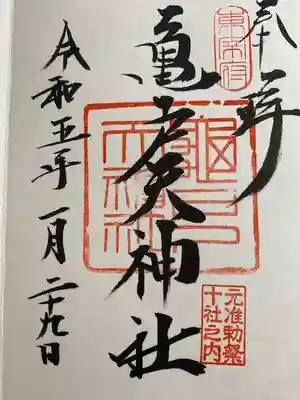 奉拝
東宰府
亀戸天神社
元准勅祭
十社之内
令和五年一月二十九日